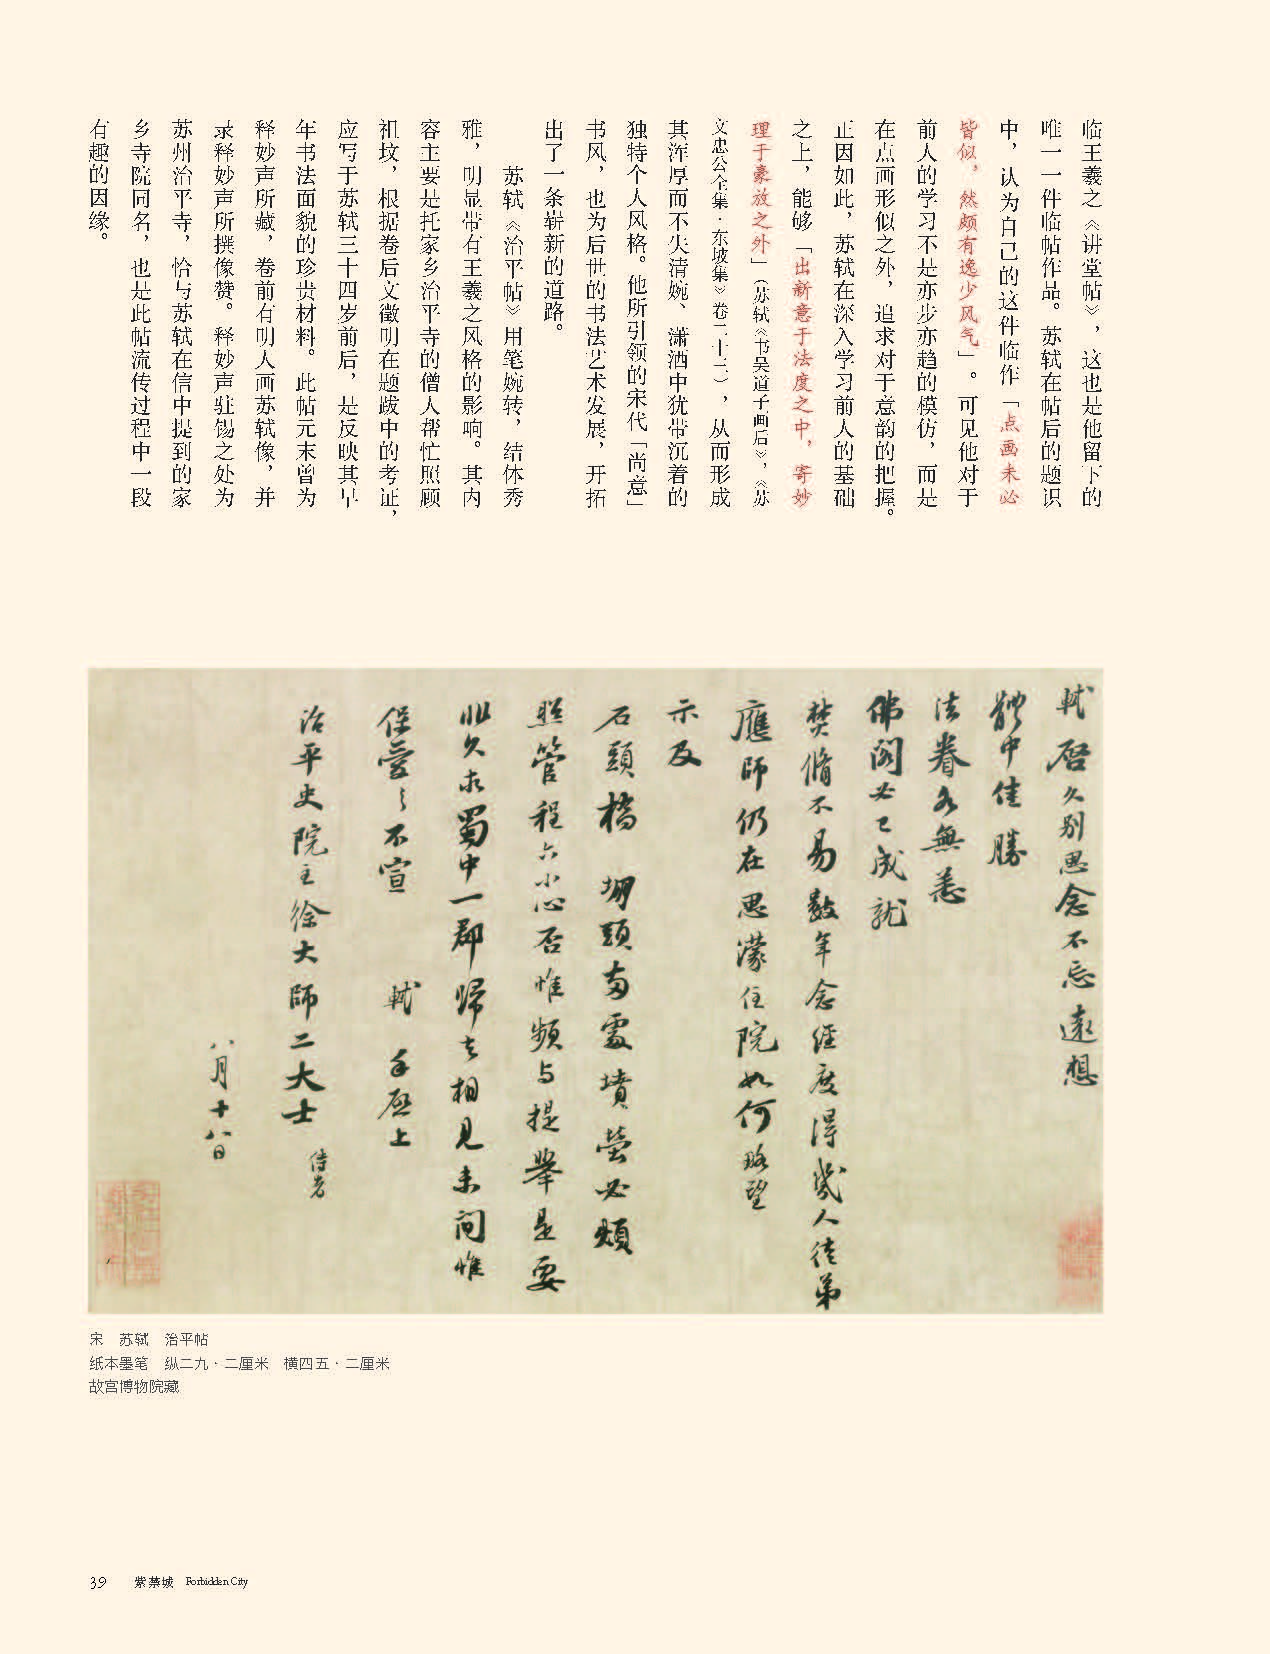 临王羲之《讲堂帖》，这也是他留下的
唯一一件临帖作品。苏轼在帖后的题识
中，认为自己的这件临作「点画未必
皆似，然颇有逸少风气」。可见他对于
前人的学习不是亦步亦趋的模仿，而是
在点画形似之外，追求对于意韵的把握。
正因如此，苏轼在深入学习前人的基础
之上，能够「出新意于法度之中，寄妙
理于豪放之外」（苏轼《书吴道子画后》，《苏
文忠公全集·东坡集》卷二十三），从而形成
其浑厚而不失清婉、潇洒中犹带沉着的
独特个人风格。他所引领的宋代「尚意」
书风，也为后世的书法艺术发展，开拓
出了一条崭新的道路。
苏轼《治平帖》用笔婉转，结体秀
雅，明显带有王羲之风格的影响。其内
容主要是托家乡治平寺的僧人帮忙照顾
祖坟，根据卷后文徵明在题跋中的考证，
应写于苏轼三十四岁前后，是反映其早
年书法面貌的珍贵材料。此帖元末曾为
释妙声所藏，卷前有明人画苏轼像，并
录释妙声所撰像赞。释妙声驻锡之处为
苏州治平寺，恰与苏轼在信中提到的家
乡寺院同名，也是此帖流传过程中一段
有趣的因缘。
轼启久别思念不忘遠想
體中佳勝
法眷各無恙
佛阁必已成就
焚脩不易數年念经度得幾人徒弟
應師仍在思濛住院如何略望
示及
石頭橋 堋頭兩處墳塋必煩
照管程六小心否惟頻与提舉是要
非久求蜀中一郡歸去相見未间惟
保愛之不宣 轼 手启上
治平史院主徐大師二大士 侍者
八月十八日
宋 苏轼 治平帖
纸本墨笔 纵二九·二厘米 横四五·二厘米
故宫博物院藏
39 紫禁城 Forbidden City